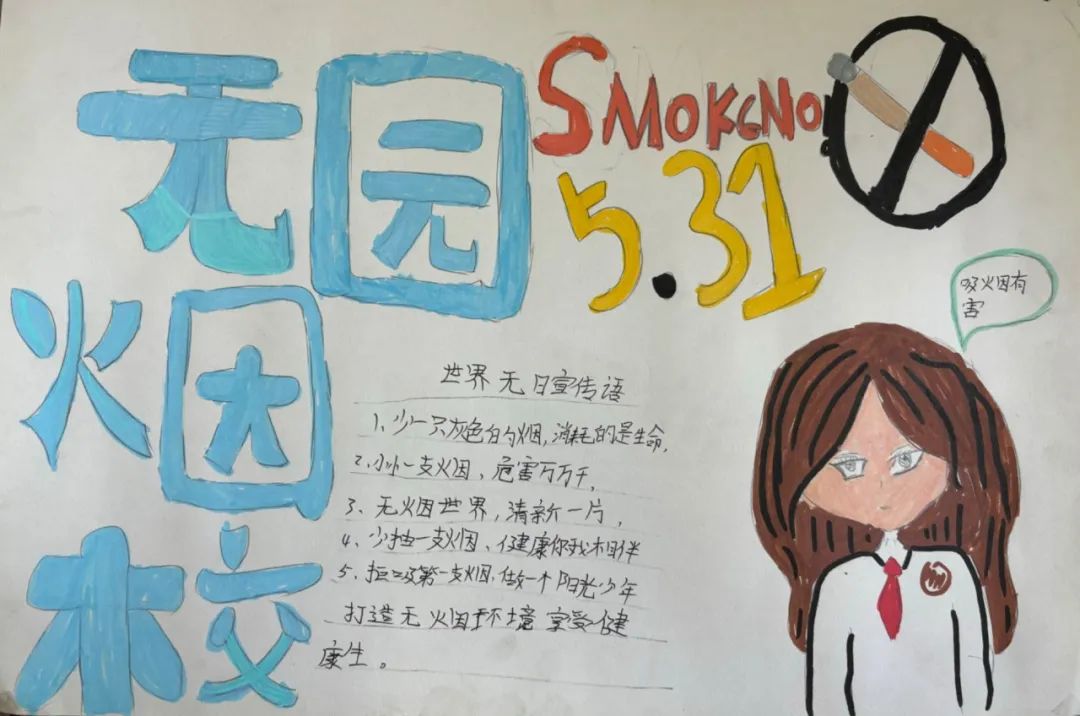 无烟校园
SMOKENO
5.31
吸烟有
害
世界无日宣传语
1、少一只灰色的烟,消耗的是生命,
2、小小一支火因、危害万万千,
3、无烟世界,清新一片,
4、少抽一支烟、健康你我相伴
5、拒吸第一支烟,做一个阳光少年
打造无烟环境享受健
康生。